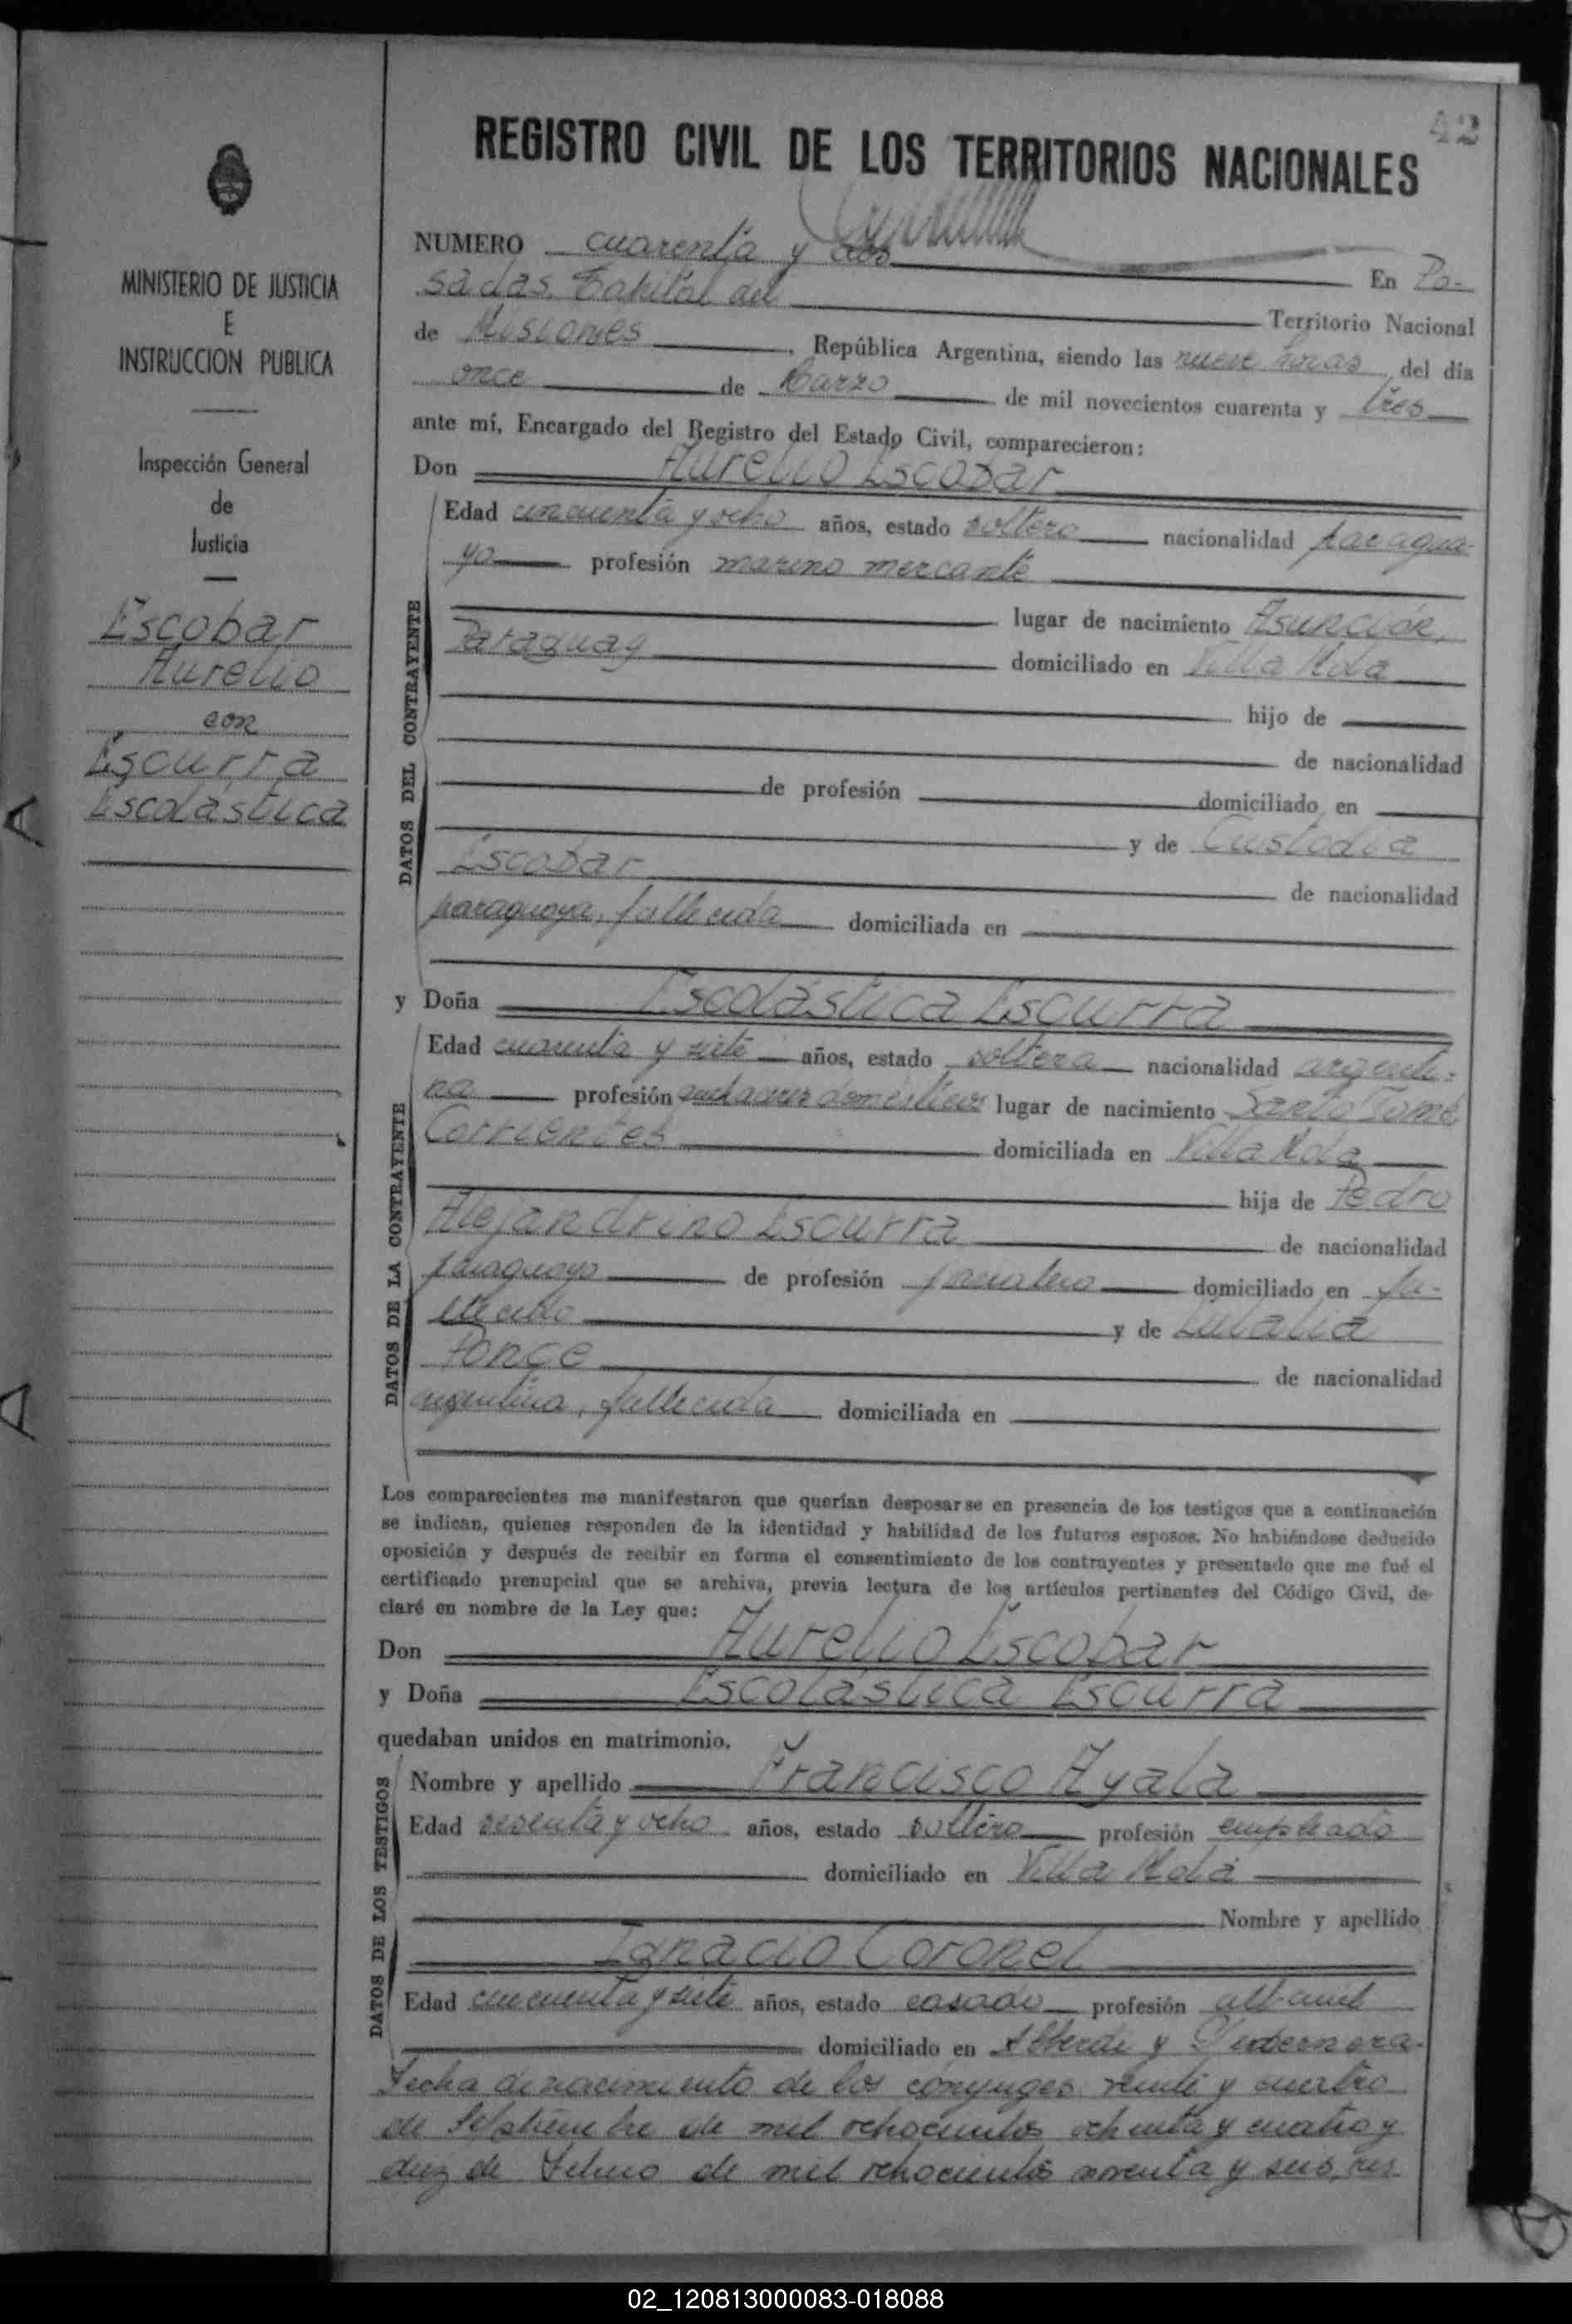 42
REGISTRO CIVIL DE LOS TERRITORIOS NACIONALES
MINISTERIO DE JUSTICIA
E
INSTRUCCION PUBLICA
Inspección General
de
Justicia
Escobar
Aurelio
con
Escurra
Escolástica
NUMERO cuarenta y dos En Po-
sadas, Capital del Territorio Nacional
de Misiones, República Argentina, siendo las nueve horas del día
once de Marzo de mil novecientos cuarenta y tres
ante mí, Encargado del Registro del Estado Civil, comparecieron:
Don Aurelio Escobar
DATOS DEL CONTRAYENTE
Edad cincuenta y ocho años, estado soltero nacionalidad paragua-
yo profesión marino mercante
lugar de nacimiento Asunción,
Paraguay domiciliado en Villa Mola
hijo de
de nacionalidad
de profesión domiciliado en
y de Custodia
Escobar de nacionalidad
paraguaya, fallecida domiciliada en
y Doña Escolástica Escurra
DATOS DE LA CONTRAYENTE
Edad cuarenta y siete años, estado soltera nacionalidad argenti-
na profesión quehaceres domésticos lugar de nacimiento Santo Tomé,
Corrientes domiciliada en Villa Mola
hija de Pedro
Alejandrino Escurra de nacionalidad
paraguayo de profesión jornalero domiciliado en fa-
llecido y de Eulalia
Ponce de nacionalidad
argentina, fallecida domiciliada en
Los comparecientes me manifestaron que querían desposarse en presencia de los testigos que a continuación
se indican, quienes responden de la identidad y habilidad de los futuros esposos. No habiéndose deducido
oposición y después de recibir en forma el consentimiento de los contrayentes y presentado que me fué el
certificado prenupcial que se archiva, previa lectura de los artículos pertinentes del Código Civil, de-
claré en nombre de la Ley que:
Don Aurelio Escobar
y Doña Escolástica Escurra
quedaban unidos en matrimonio.
DATOS DE LOS TESTIGOS
Nombre y apellido Francisco Ayala
Edad sesenta y ocho años, estado soltero profesión empleado
domiciliado en Villa Mola
Nombre y apellido
Ignacio Coronel
Edad cincuenta y siete años, estado casado profesión albañil
domiciliado en Alberdi y Pedernera.
Fecha de nacimiento de los cónyuges veinte y cuatro
de Septiembre de mil ochocientos ochenta y cuatro y
diez de Febrero de mil ochocientos noventa y seis, res
02_120813000083-018088